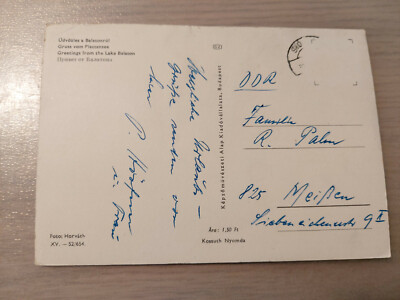 Üdvözlet a Balatonról
Gruss vom Plattensee
Greetings from the Lake Balaton
Привет от Балатона
Herzliche Urlaubs-
grüße senden
P.
u. Frau
Foto: Horváth
XV. — 52/654
Képzőművészeti Alap Kiadóvállalata, Budapest
Ára: 1,50 Ft
Kossuth Nyomda
DDR
Familie
R. Palm
825 Meißen